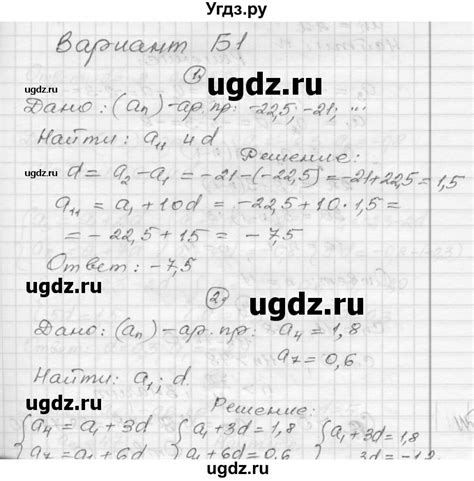 Угдз.ру
Вариант Б1
1)
ugdz.ru ugdz.ru
Дано: (aₙ)-ар.пр: -22,5; -21; ...
Найти: a₁₁ и d.
ugdz.ru Решение:
d = a₂ - a₁ = -21-(-22,5)=-21+22,5=1,5
a₁₁ = a₁ + 10d = -22,5+10·1,5=
= -22,5+15 = -7,5
Ответ: -7,5
ugdz.ru 2) ugdz.ru
Дано: (aₙ)-ар.пр: a₄ = 1,8
a₇ = 0,6
Найти: a₁; d.
Решение:
{a₄ = a₁ + 3d {a₁ + 3d = 1,8 {a₁ + 3d = 1,8
a₇ = a₁ + 6d a₁ + 6d = 0,6 3d = -1,2
ugdz.ru